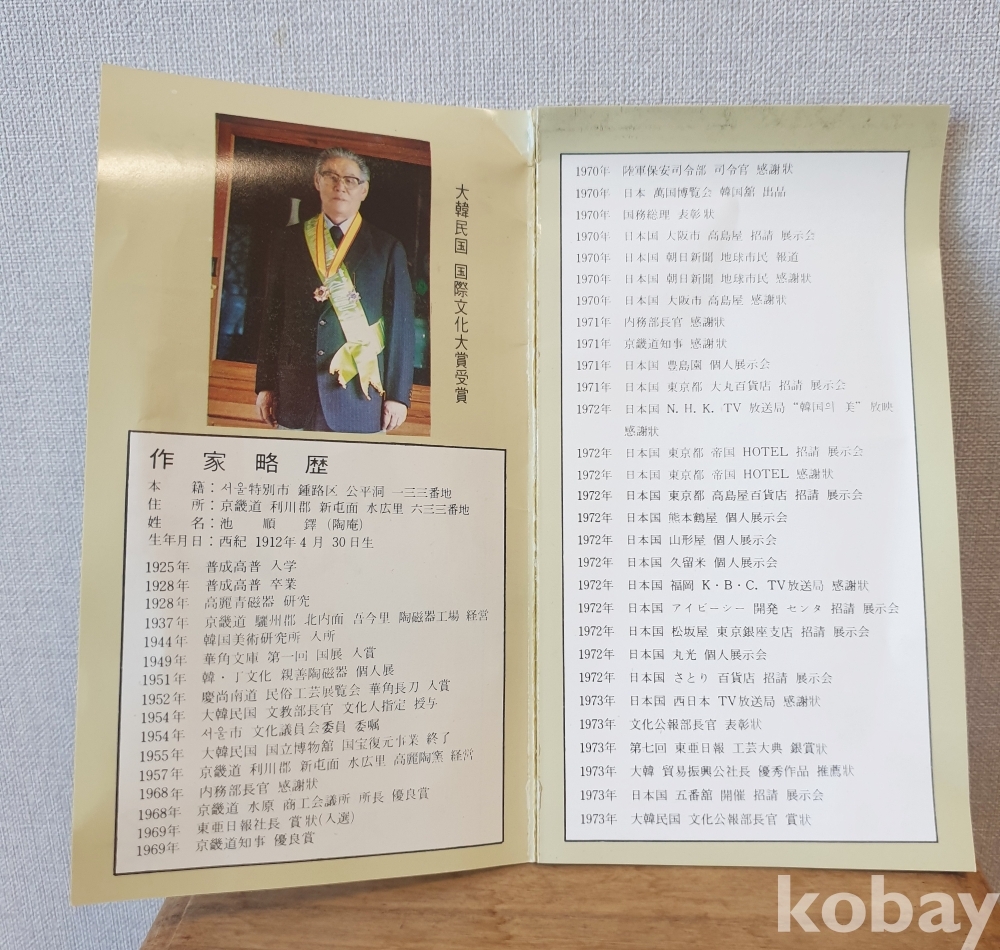 大韓民国 国際文化大賞受賞
作家略歴
本籍：서울特別市 鍾路区 公平洞 一三三番地
住所：京畿道 利川郡 新屯面 水広里 六三三番地
姓名：池順鐸（陶庵）
生年月日：西紀 1912年4月 30日生
1925年 普成高普 入学
1928年 普成高普 卒業
1928年 高麗青磁器 研究
1937年 京畿道 驪州郡 北内面 吾今里 陶磁器工場 経営
1944年 韓国美術研究所 入所
1949年 華角文庫 第一回 国展 入賞
1951年 韓・丁文化 親善陶磁器 個人展
1952年 慶尚南道 民俗工芸展覧会 華角長刀 入賞
1954年 大韓民国 文教部長官 文化人指定 授与
1954年 서울市 文化議員会委員 委嘱
1955年 大韓民国 国立博物館 国宝復元事業 終了
1957年 京畿道 利川郡 新屯面 水広里 高麗陶窯 経営
1968年 内務部長官 感謝狀
1968年 京畿道 水原 商工会議所 所長 優良賞
1969年 東亜日報社長 賞狀(入選)
1969年 京畿道知事 優良賞
1970年 陸軍保安司令部 司令官 感謝狀
1970年 日本 萬国博覧会 韓国舘 出品
1970年 国務総理 表彰狀
1970年 日本国 大阪市 高島屋 招請 展示会
1970年 日本国 朝日新聞 地球市民 報道
1970年 日本国 朝日新聞 地球市民 感謝狀
1970年 日本国 大阪市 高島屋 感謝狀
1971年 内務部長官 感謝狀
1971年 京畿道知事 感謝狀
1971年 日本国 豊島園 個人展示会
1971年 日本国 東京都 大丸百貨店 招請 展示会
1972年 日本国 N.H.K. TV 放送局 “韓国의 美” 放映
感謝狀
1972年 日本国 東京都 帝国 HOTEL 招請 展示会
1972年 日本国 東京都 帝国 HOTEL 感謝狀
1972年 日本国 東京都 高島屋百貨店 招請 展示会
1972年 日本国 熊本鶴屋 個人展示会
1972年 日本国 山形屋 個人展示会
1972年 日本国 久留米 個人展示会
1972年 日本国 福岡 K・B・C. TV放送局 感謝狀
1972年 日本国 アイビーシー 開発 センタ 招請 展示会
1972年 日本国 松坂屋 東京銀座支店 招請 展示会
1972年 日本国 丸光 個人展示会
1972年 日本国 さとり 百貨店 招請 展示会
1973年 日本国 西日本 TV放送局 感謝狀
1973年 文化公報部長官 表彰狀
1973年 第七回 東亜日報 工芸大典 銀賞狀
1973年 大韓 貿易振興公社長 優秀作品 推薦狀
1973年 日本国 五番舘 開催 招請 展示会
1973年 大韓民国 文化公報部長官 賞狀
kobay